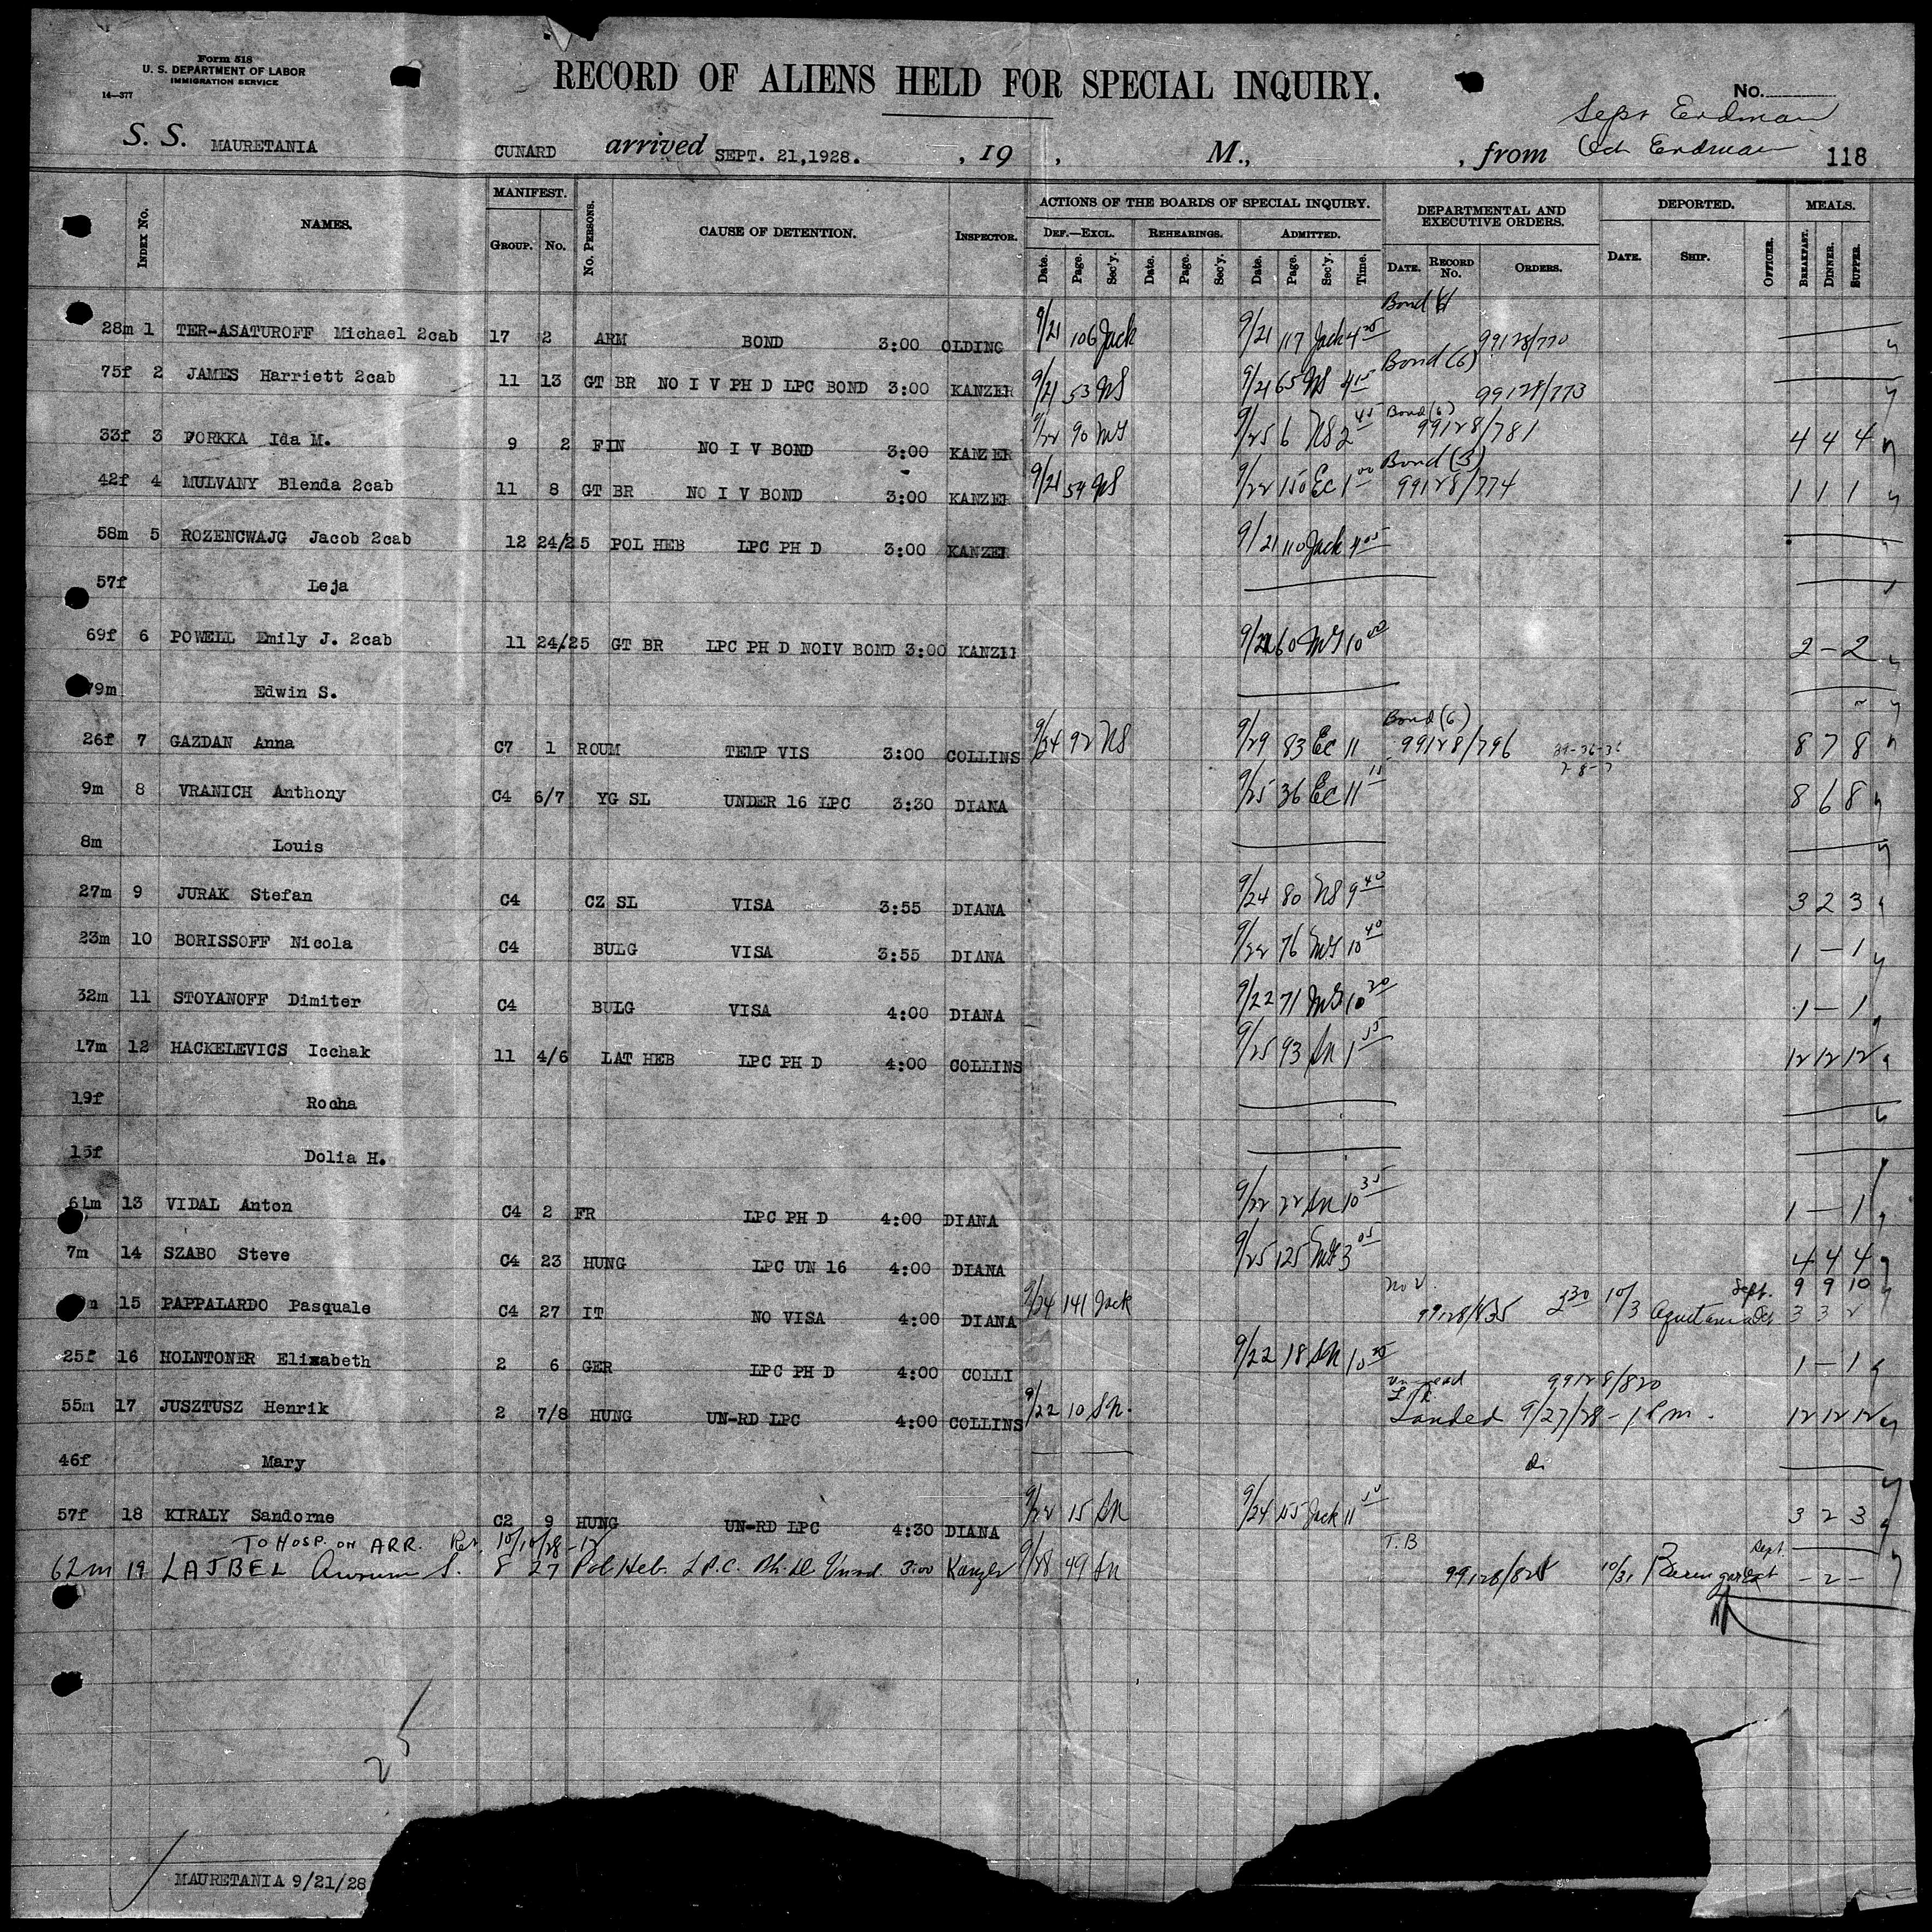 Form 518
U. S. DEPARTMENT OF LABOR
IMMIGRATION SERVICE
14—377
RECORD OF ALIENS HELD FOR SPECIAL INQUIRY.
No.
Sept Erdman
S. S. MAURETANIA CUNARD arrived SEPT. 21,1928. , 19 , M., , from Oct Erdman 118
INDEX NO. NAMES. MANIFEST. GROUP. NO. NO. PERSONS. CAUSE OF DETENTION. INSPECTOR. ACTIONS OF THE BOARDS OF SPECIAL INQUIRY. DEF.—EXCL. REHEARINGS. ADMITTED. DEPARTMENTAL AND EXECUTIVE ORDERS. DEPORTED. MEALS.
Date. Page. Sec'y. Date. Page. Sec'y. Date. Page. Sec'y. Time. DATE. RECORD No. ORDERS. DATE. SHIP. OFFICER. BREAKFAST. DINNER. SUPPER.
28m 1 TER-ASATUROFF Michael 2cab 17 2 ARM BOND 3:00 OLDING 9/21 106 Jack 9/21 117 Jack 4 25 Bond 99128/770
75f 2 JAMES Harriett 2cab 11 13 GT BR NO I V PH D LPC BOND 3:00 KANZER 9/21 53 NS 9/21 65 NS 4 15 Bond (6) 99128/773
33f 3 PORKKA Ida M. 9 2 FIN NO I V BOND 3:00 KANZER 9/22 90 MS 9/25 6 NS 2 45 Bond (6) 99128/781 4 4 4
42f 4 MULVANY Blenda 2cab 11 8 GT BR NO I V BOND 3:00 KANZER 9/21 54 NS 9/22 150 EC 1 00 Bond (3) 99128/774 1 1 1
58m 5 ROZENCWAJG Jacob 2cab 12 24/25 POL HEB LPC PH D 3:00 KANZER 9/21 110 Jack 4 05
57f Leja
69f 6 POWELL Emily J. 2cab 11 24/25 GT BR LPC PH D NOIV BOND 3:00 9/22 60 MS 10 40 2 – 2
79m Edwin S.
26f 7 GAZDAN Anna C7 1 ROUM TEMP VIS 3:00 COLLINS 9/24 92 NS 9/29 83 EC 11 Bond (6) 99128/796 8 7 8
9m 8 VRANICH Anthony C4 6/7 YG SL UNDER 16 LPC 3:30 DIANA 9/25 36 EC 11 15 8 6 8
8m Louis
27m 9 JURAK Stefan C4 CZ SL VISA 3:55 DIANA 9/24 80 NS 9 40 3 2 3
23m 10 BORISSOFF Nicola C4 BULG VISA 3:55 DIANA 9/22 76 MS 10 40 1 – 1
32m 11 STOYANOFF Dimiter C4 BULG VISA 4:00 DIANA 9/22 71 MS 10 20 1 – 1
17m 12 HACKELEVICS Icchak 11 4/6 LAT HEB LPC PH D 4:00 COLLINS 9/25 93 SN 1 15 12 12 12
19f Rocha
15f Dolia H.
61m 13 VIDAL Anton C4 2 FR LPC PH D 4:00 DIANA 9/22 22 SN 10 35 1 – 1
7m 14 SZABO Steve C4 23 HUNG LPC UN 16 4:00 DIANA 9/25 125 MS 3 05 4 4 4
15 PAPPALARDO Pasquale C4 27 IT NO VISA 4:00 DIANA 9/24 141 Jack no V. 99128/835 2 30 10/3 Aquitania Sept. 9 9 10 Oct 3 3 2
25f 16 HOLNTONER Elizabeth 2 6 GER LPC PH D 4:00 COLLI 9/22 18 SN 10 30 1 – 1
55m 17 JUSZTUSZ Henrik 2 7/8 HUNG UN-RD LPC 4:00 COLLINS 9/22 10 SN 99128/820 Landed 9/27/28 – 1 Pm. 12 12 12
46f Mary
57f 18 KIRALY Sandorne C2 9 HUNG UN-RD LPC 4:30 DIANA 9/22 15 SN 9/24 Jack 11 3 2 3
TO HOSP. ON ARR. 10/10/28
62m 19 LAJBEL S. 8 27 Pol Heb. L.P.C. Ph. D. 3:00 Kanzer 9/28 49 SN T.B 10/31 Berengaria Sept. Oct – 2 –
25
MAURETANIA 9/21/28